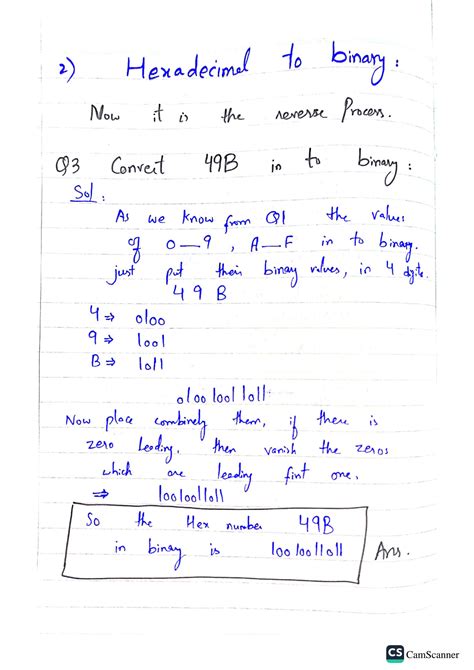 2) Hexadecimel to binary:
Now it is the reverse Process.
Q3 Convert 49B in to binary:
Sol:
As we know from Q1 the values
of 0—9, A—F in to binary.
just put their binary values, in 4 digits.
4 9 B
4 ⇒ 0100
9 ⇒ 1001
B ⇒ 1011
010010011011
Now place combinely them, if there is
zero leading, then vanish the zeros
which are leading first one.
⇒ 10010011011
So the Hex number 49B
in binary is 10010011011 Ans.
CS CamScanner